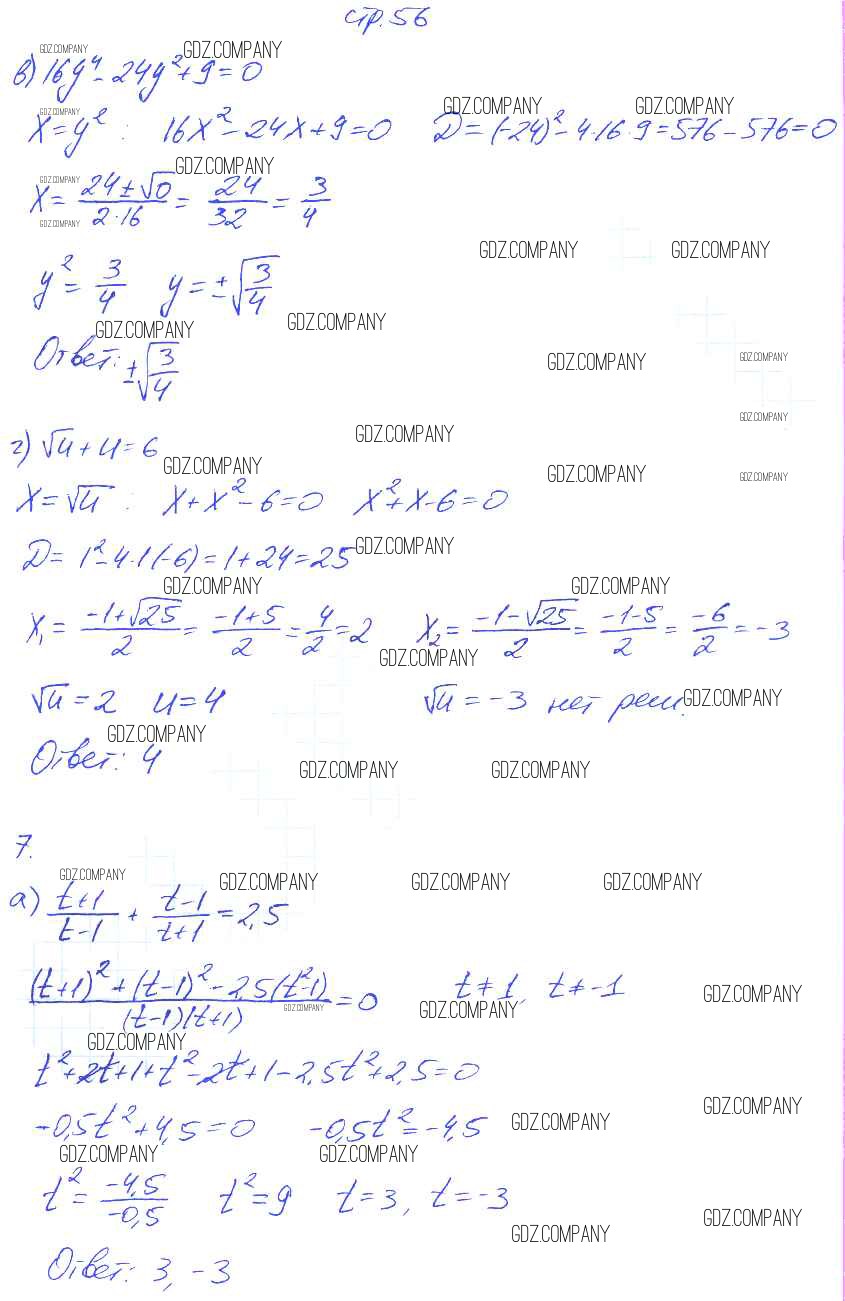 стр. 56
GDZ.COMPANY GDZ.COMPANY
в) 16y⁴ - 24y² + 9 = 0
GDZ.COMPANY GDZ.COMPANY GDZ.COMPANY
x = y² : 16x² - 24x + 9 = 0 D = (-24)² - 4·16·9 = 576 - 576 = 0
GDZ.COMPANY GDZ.COMPANY
x = (24 ± √0)/(2·16) = 24/32 = 3/4
GDZ.COMPANY GDZ.COMPANY GDZ.COMPANY
y² = 3/4 y = ±√(3/4)
GDZ.COMPANY GDZ.COMPANY
Ответ: ±√(3/4)
GDZ.COMPANY GDZ.COMPANY
GDZ.COMPANY
GDZ.COMPANY
г) √u + u = 6
GDZ.COMPANY GDZ.COMPANY GDZ.COMPANY
x = √u : x + x² - 6 = 0 x² + x - 6 = 0
D = 1² - 4·1(-6) = 1 + 24 = 25
GDZ.COMPANY
GDZ.COMPANY GDZ.COMPANY
x₁ = (-1+√25)/2 = (-1+5)/2 = 4/2 = 2 x₂ = (-1-√25)/2 = (-1-5)/2 = -6/2 = -3
GDZ.COMPANY
√u = 2 u = 4 √u = -3 нет реш.
GDZ.COMPANY
GDZ.COMPANY
Ответ: 4
GDZ.COMPANY GDZ.COMPANY
7.
GDZ.COMPANY GDZ.COMPANY GDZ.COMPANY GDZ.COMPANY
а) (t+1)/(t-1) + (t-1)/(t+1) = 2,5
((t+1)² + (t-1)² - 2,5(t²-1))/((t-1)(t+1)) = 0 t ≠ 1, t ≠ -1
GDZ.COMPANY GDZ.COMPANY GDZ.COMPANY
GDZ.COMPANY
t² + 2t + 1 + t² - 2t + 1 - 2,5t² + 2,5 = 0
GDZ.COMPANY
-0,5t² + 4,5 = 0 -0,5t² = -4,5
GDZ.COMPANY
GDZ.COMPANY GDZ.COMPANY
t² = -4,5/-0,5 t² = 9 t = 3, t = -3
GDZ.COMPANY GDZ.COMPANY
Ответ: 3, -3